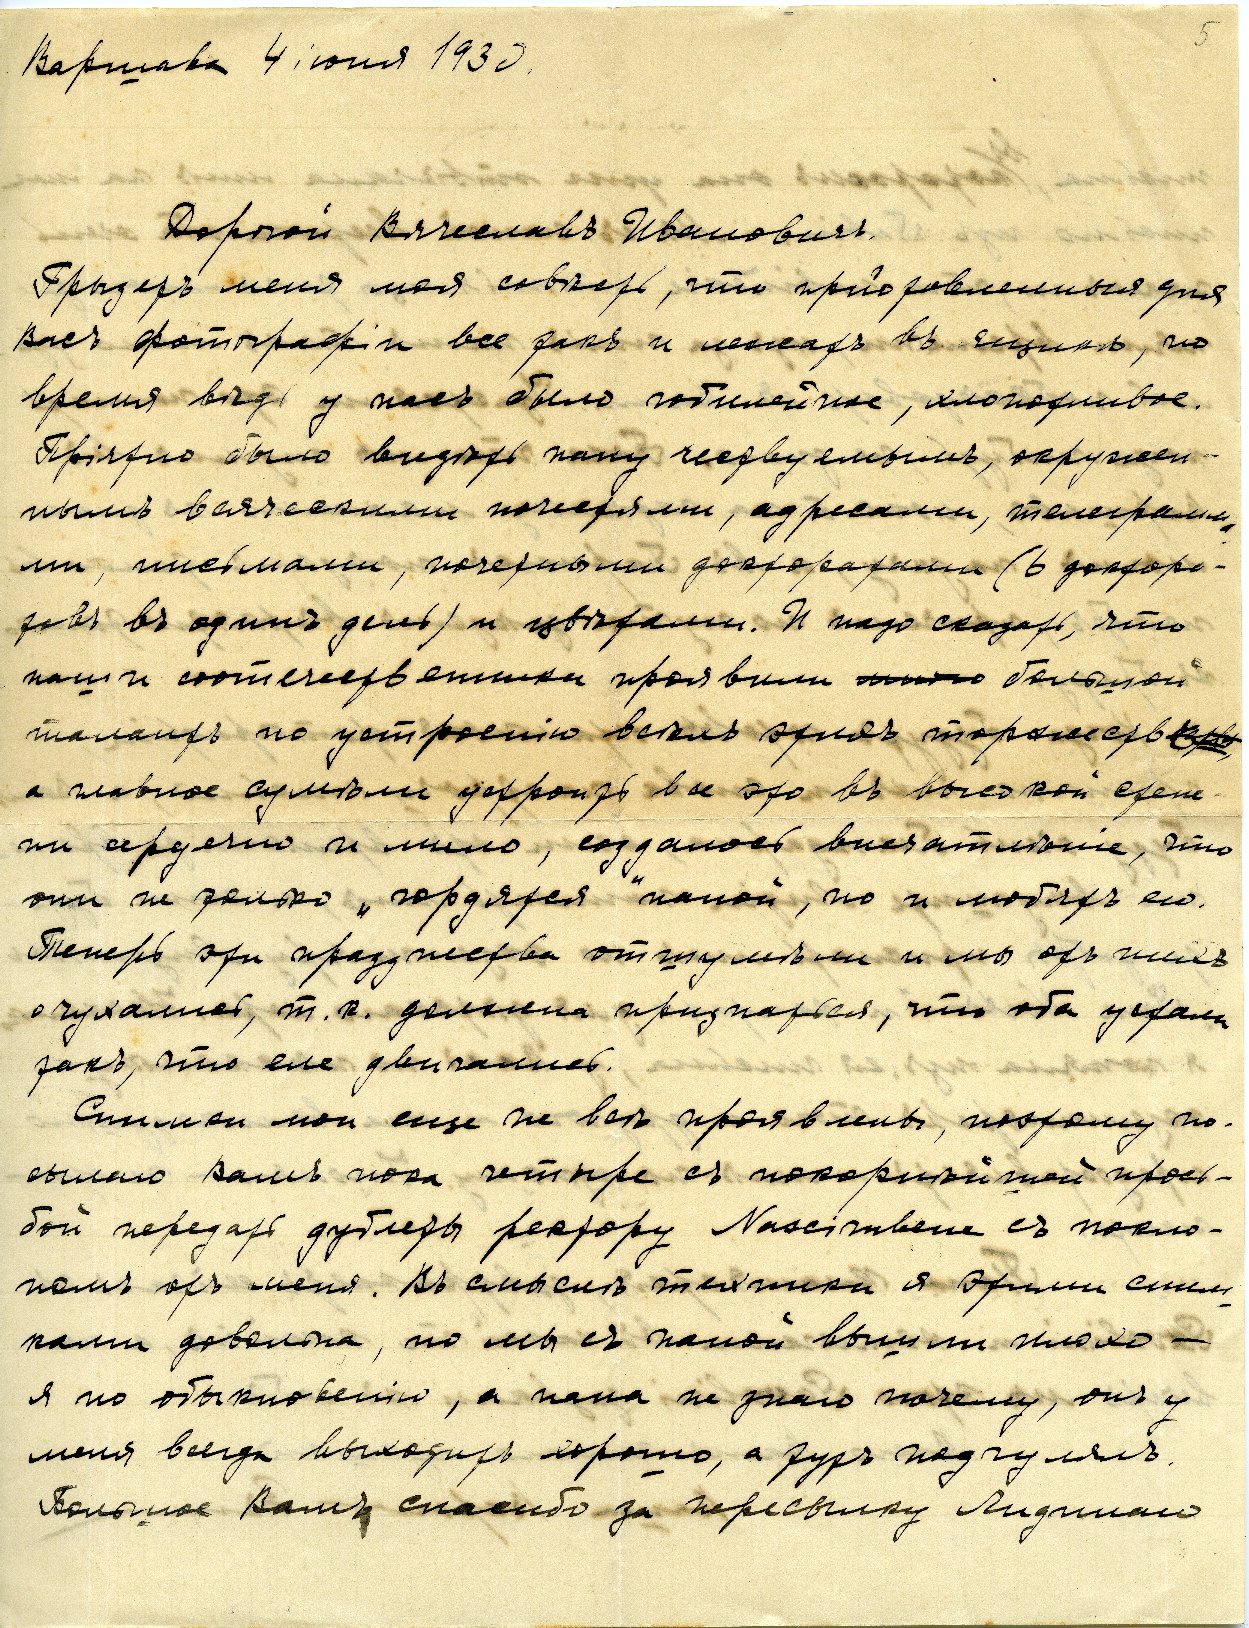 5
Варшава 4 іюня 1930.
Дорогой Вячеславъ Ивановичъ.
Грызетъ меня моя совѣсть, что приготовленныя для
Васъ фотографіи все такъ и лежатъ въ ящикѣ, но
время вѣдь у насъ было юбилейное, хлопотливое.
Пріятно было видѣть папу чествуемымъ, окружен-
нымъ всяческими почестями, адресами, телеграмма-
ми, письмами, почетными докторатами (6 доктора-
товъ въ одинъ день) и цвѣтами. И надо сказать, что
наши соотечественники проявили много большой
талантъ по устроенію всѣхъ этихъ торжествъ,
а главное сумѣли устроить все это въ высокой степе-
ни сердечно и мило, создалось впечатлѣніе, что
они не только „гордятся" папой, но и любятъ его.
Теперь эти празднества отшумѣли и мы отъ нихъ
очухались, т.к. должна признаться, что оба устали
такъ, что еле двигались.
Снимки мои еще не всѣ проявлены, поэтому по-
сылаю Вамъ пока четыре съ покорнѣйшей прось-
бой передать дублеты ректору Nascimbene съ покло-
номъ отъ меня. Въ смыслѣ техники я этими сним-
ками довольна, но мы съ папой вышли плохо —
я по обыкновенію, а папа не знаю почему, онъ у
меня всегда выходитъ хорошо, а тутъ подгулялъ.
Большое Вамъ спасибо за пересылку Лидиного